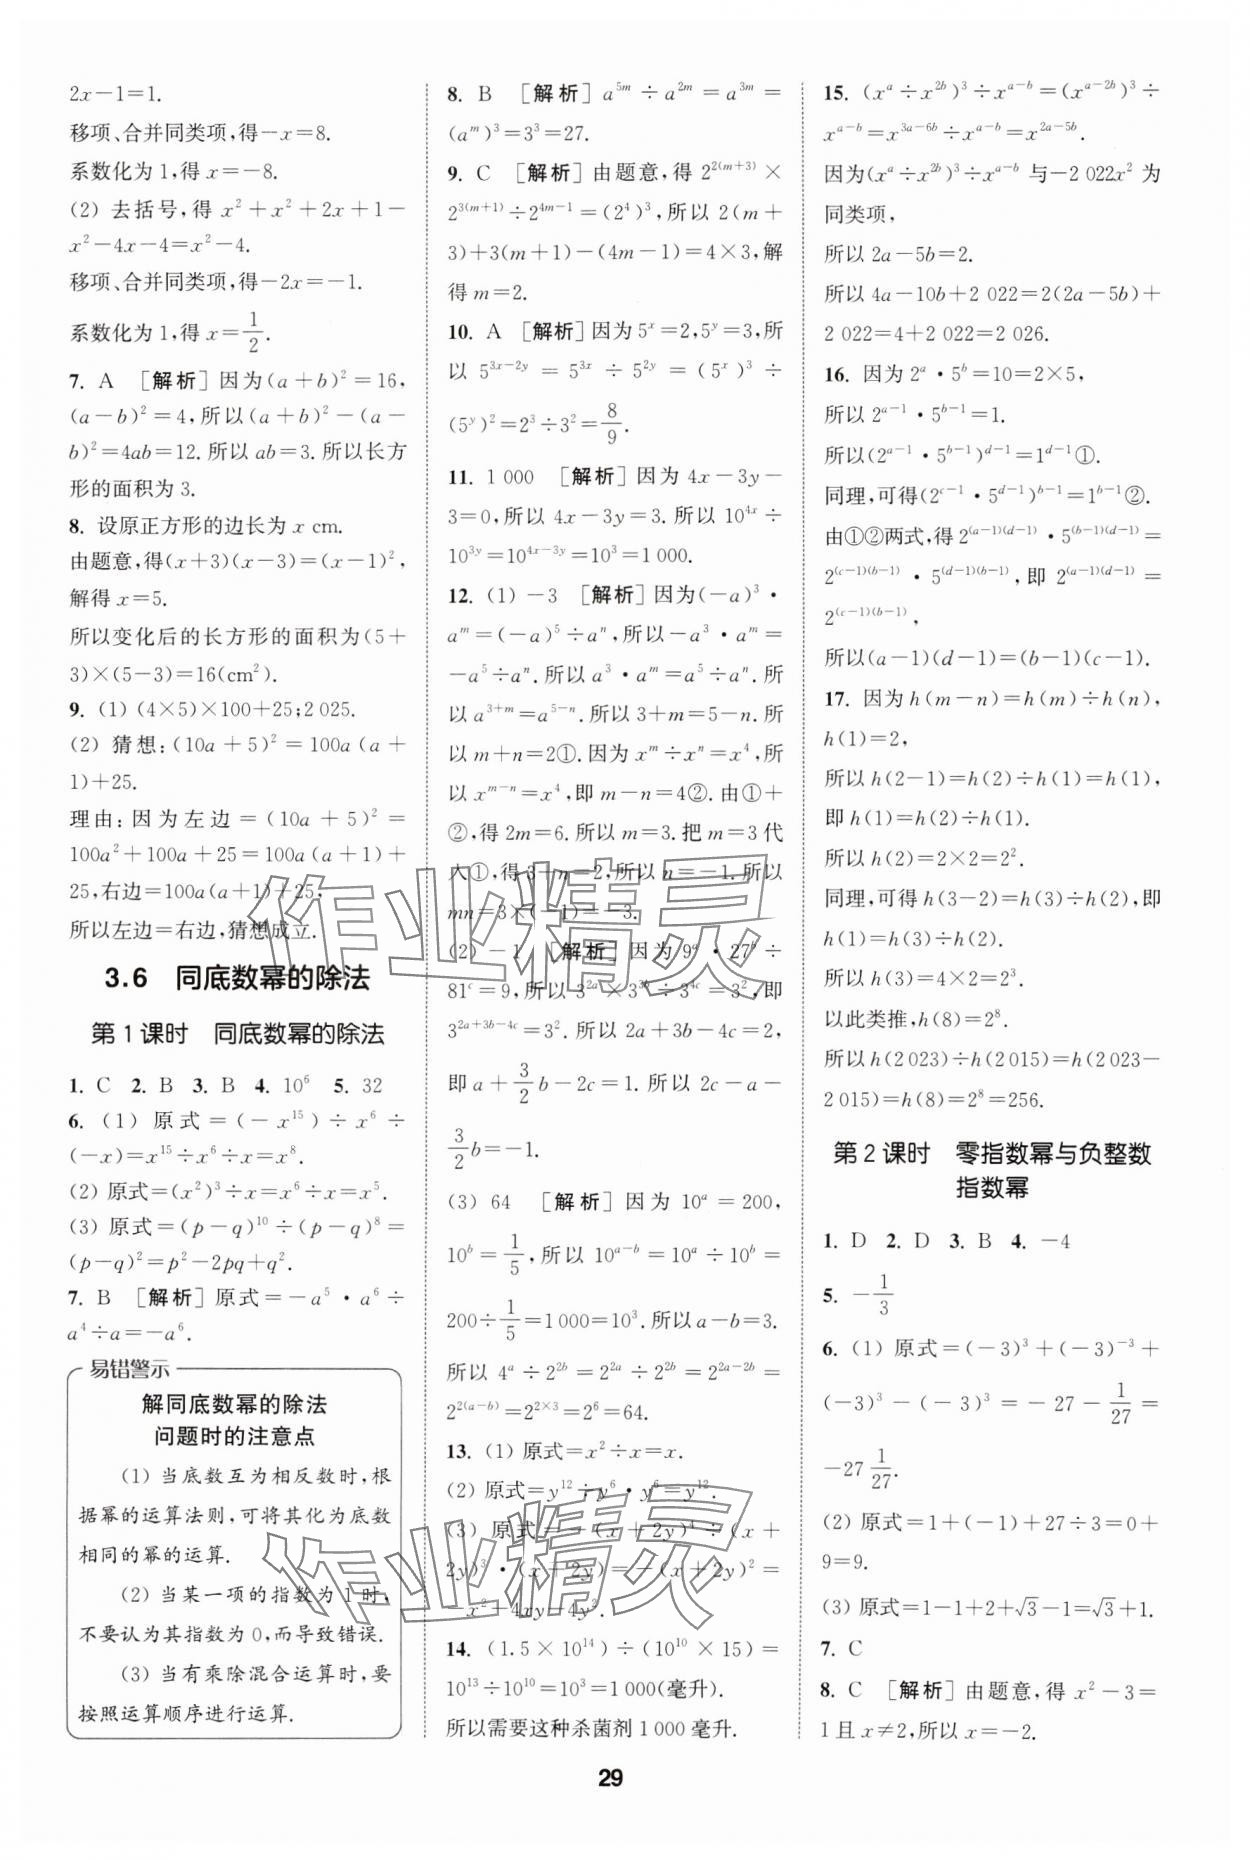 2x-1=1.
移项、合并同类项,得-x=8.
系数化为1,得x=-8.
(2) 去括号,得 x²+x²+2x+1-
x²-4x-4=x²-4.
移项、合并同类项,得-2x=-1.
系数化为1,得x=1/2.
7. A [解析]因为(a+b)²=16,
(a-b)²=4,所以(a+b)²-(a-
b)²=4ab=12.所以ab=3.所以长方
形的面积为3.
8. 设原正方形的边长为x cm.
由题意,得(x+3)(x-3)=(x-1)²,
解得x=5.
所以变化后的长方形的面积为(5+
3)×(5-3)=16(cm²).
9. (1) (4×5)×100+25;2 025.
(2) 猜想:(10a+5)²=100a(a+
1)+25.
理由:因为左边=(10a+5)²=
100a²+100a+25=100a(a+1)+
25,右边=100a(a+1)+25,
所以左边=右边,猜想成立.
3.6 同底数幂的除法
第1课时 同底数幂的除法
1. C 2. B 3. B 4. 10⁶ 5. 32
6. (1) 原式=(-x¹⁵)÷x⁶÷
(-x)=x¹⁵÷x⁶÷x=x⁸.
(2) 原式=(x²)³÷x=x⁶÷x=x⁵.
(3) 原式=(p-q)¹⁰÷(p-q)⁸=
(p-q)²=p²-2pq+q².
7. B [解析]原式=-a⁵·a⁶÷
a⁴÷a=-a⁶.
易错警示
解同底数幂的除法
问题时的注意点
(1) 当底数互为相反数时,根
据幂的运算法则,可将其化为底数
相同的幂的运算.
(2) 当某一项的指数为1时,
不要认为其指数为0,而导致错误.
(3) 当有乘除混合运算时,要
按照运算顺序进行运算.
8. B [解析]a^{5m}÷a^{2m}=a^{3m}=
(a^m)³=3³=27.
9. C [解析]由题意,得2^{2(m+3)}×
2^{3(m+1)}÷2^{4m-1}=(2⁴)³,所以2(m+
3)+3(m+1)-(4m-1)=4×3,解
得m=2.
10. A [解析]因为5^x=2,5^y=3,所
以5^{3x-2y}=5^{3x}÷5^{2y}=(5^x)³÷
(5^y)²=2³÷3²=8/9.
11. 1 000 [解析]因为4x-3y-
3=0,所以4x-3y=3.所以10^{4x}÷
10^{3y}=10^{4x-3y}=10³=1 000.
12. (1) -3 [解析]因为(-a)³·
a^m=(-a)⁵÷a^n,所以-a³·a^m=
-a⁵÷a^n.所以a³·a^m=a⁵÷a^n.所
以a^{3+m}=a^{5-n}.所以3+m=5-n.所
以m+n=2①.因为x^m÷x^n=x⁴,所
以x^{m-n}=x⁴,即m-n=4②.由①+
②,得2m=6.所以m=3.把m=3代
入①,得3+n=2,所以n=-1.所以
mn=3×(-1)=-3.
(2) -1 [解析]因为9^a·27^b÷
81^c=9,所以3^{2a}×3^{3b}÷3^{4c}=3²,即
3^{2a+3b-4c}=3².所以2a+3b-4c=2,
即a+3/2b-2c=1.所以2c-a-
3/2b=-1.
(3) 64 [解析]因为10^a=200,
10^b=1/5,所以10^{a-b}=10^a÷10^b=
200÷1/5=1 000=10³.所以a-b=3.
所以4^a÷2^{2b}=2^{2a}÷2^{2b}=2^{2a-2b}=
2^{2(a-b)}=2^{2×3}=2⁶=64.
13. (1) 原式=x²÷x=x.
(2) 原式=y¹²÷y⁶·y⁶=y¹².
(3) 原式=-(x+2y)⁴÷(x+
2y)³·(x+2y)=-(x+2y)²=
-x²-4xy-4y².
14. (1.5×10¹⁴)÷(10¹⁰×15)=
10¹³÷10¹⁰=10³=1 000(毫升).
所以需要这种杀菌剂1 000毫升.
15. (x^a÷x^{2b})³÷x^{a-b}=(x^{a-2b})³÷
x^{a-b}=x^{3a-6b}÷x^{a-b}=x^{2a-5b}.
因为(x^a÷x^{2b})³÷x^{a-b}与-2 022x²为
同类项,
所以2a-5b=2.
所以4a-10b+2 022=2(2a-5b)+
2 022=4+2 022=2 026.
16. 因为2^a·5^b=10=2×5,
所以2^{a-1}·5^{b-1}=1.
所以(2^{a-1}·5^{b-1})^{d-1}=1^{d-1}①.
同理,可得(2^{c-1}·5^{d-1})^{b-1}=1^{b-1}②.
由①②两式,得2^{(a-1)(d-1)}·5^{(b-1)(d-1)}=
2^{(c-1)(b-1)}·5^{(d-1)(b-1)},即2^{(a-1)(d-1)}=
2^{(c-1)(b-1)},
所以(a-1)(d-1)=(b-1)(c-1).
17. 因为h(m-n)=h(m)÷h(n),
h(1)=2,
所以h(2-1)=h(2)÷h(1)=h(1),
即h(1)=h(2)÷h(1).
所以h(2)=2×2=2².
同理,可得h(3-2)=h(3)÷h(2),即
h(1)=h(3)÷h(2).
所以h(3)=4×2=2³.
以此类推,h(8)=2⁸.
所以h(2 023)÷h(2 015)=h(2 023-
2 015)=h(8)=2⁸=256.
第2课时 零指数幂与负整数
指数幂
1. D 2. D 3. B 4. -4
5. -1/3
6. (1) 原式=(-3)³+(-3)⁻³+
(-3)³-(-3)³=-27-1/27=
-27 1/27.
(2) 原式=1+(-1)+27÷3=0+
9=9.
(3) 原式=1-1+2+√3-1=√3+1.
7. C
8. C [解析]由题意,得x²-3=
1且x≠2,所以x=-2.
29
作业精灵
作业精灵